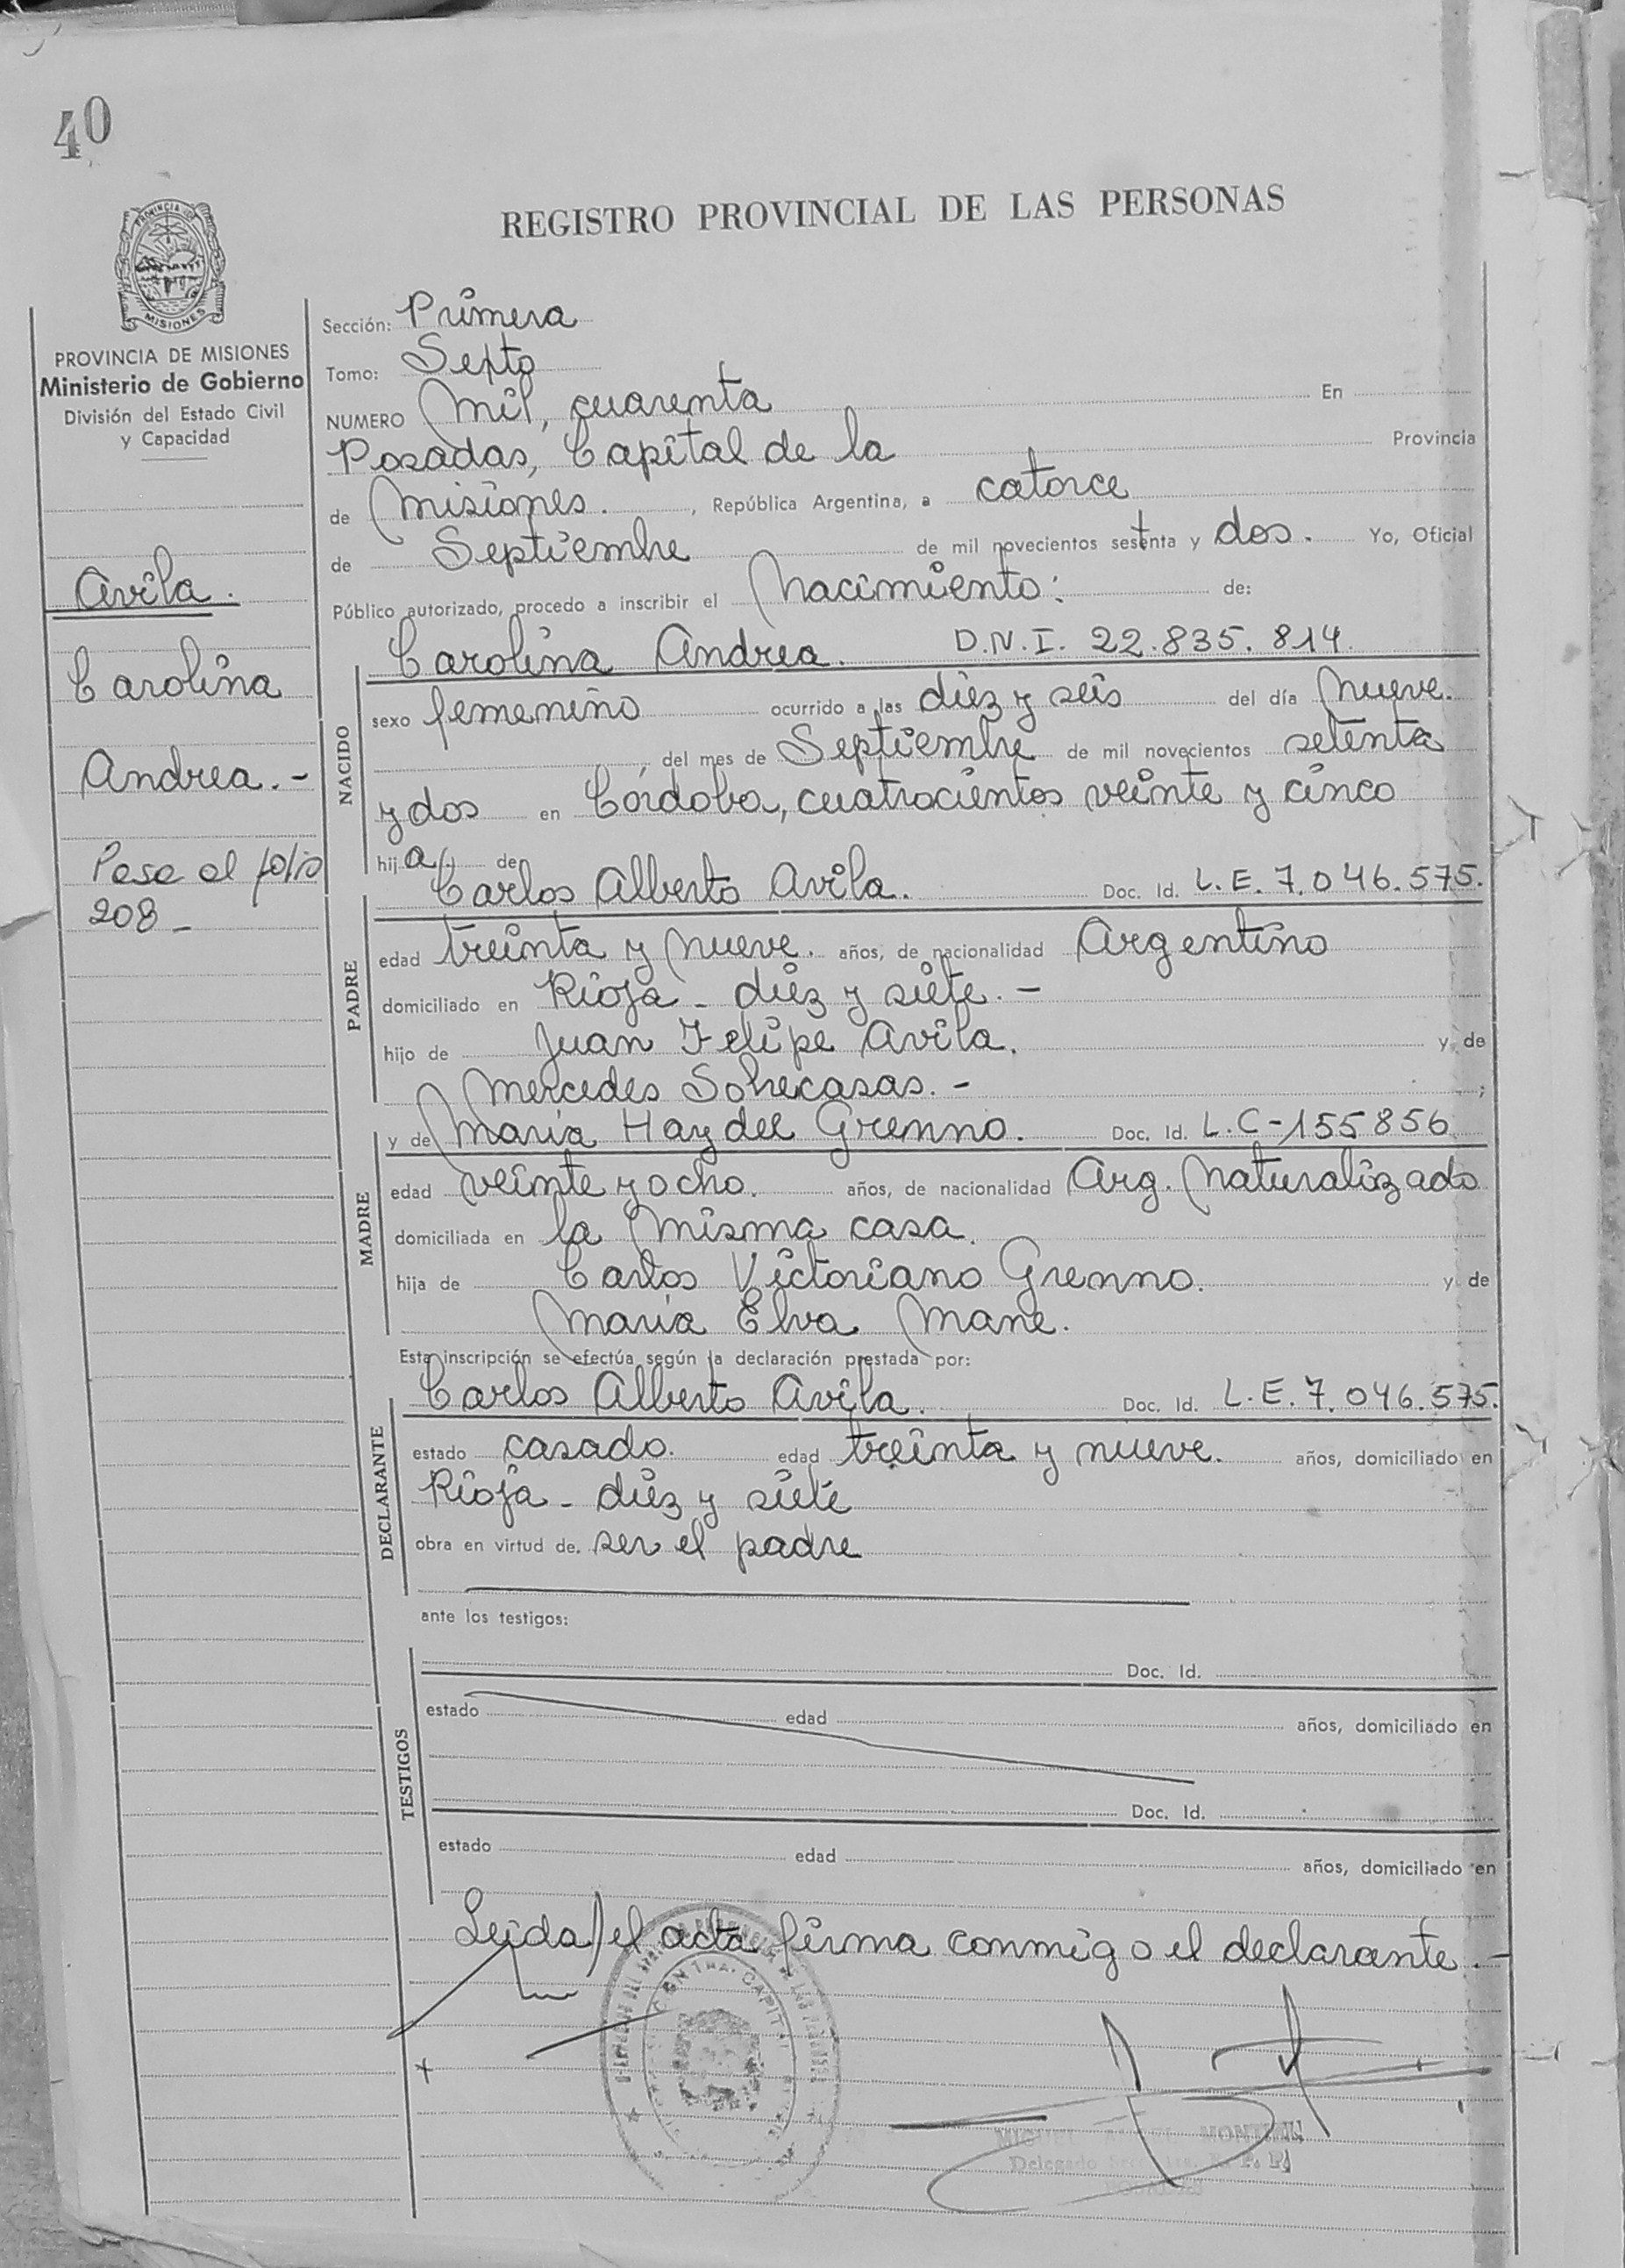 40
PROVINCIA DE
MISIONES
PROVINCIA DE MISIONES
Ministerio de Gobierno
División del Estado Civil
y Capacidad
Avila.
Carolina
Andrea.-
Pasa al folio
208-
REGISTRO PROVINCIAL DE LAS PERSONAS
Sección: Primera
Tomo: Septo
NUMERO Mil, cuarenta En
Posadas, Capital de la Provincia
de Misiones. , República Argentina, a catorce
de Septiembre de mil novecientos sesenta y dos. Yo, Oficial
Público autorizado, procedo a inscribir el Nacimiento: de:
NACIDO
Carolina Andrea. D.N.I. 22.835.814.
sexo femenino ocurrido a las diez y seis del día Nueve.
del mes de Septiembre de mil novecientos setenta
y dos en Córdoba, cuatrocientos veinte y cinco
hija de
PADRE
Carlos Alberto Avila. Doc. Id. L.E. 7.046.575.
edad treinta y nueve. años, de nacionalidad Argentino
domiciliado en Rioja - diez y siete.-
hijo de Juan Felipe Avila. y de
Mercedes Sobrecasas.- ;
MADRE
y de María Haydee Grenno. Doc. Id. L.C-155856
edad veinte y ocho. años, de nacionalidad Arg. Naturalizado
domiciliada en la misma casa.
hija de Carlos Victoriano Grenno. y de
María Elva Mane.
Esta inscripción se efectúa según la declaración prestada por:
DECLARANTE
Carlos Alberto Avila. Doc. Id. L.E. 7.046.575.
estado casado. edad treinta y nueve. años, domiciliado en
Rioja - diez y siete
obra en virtud de. ser el padre
ante los testigos:
TESTIGOS
Doc. Id.
estado edad años, domiciliado en
Doc. Id.
estado edad años, domiciliado en
Leida el acta firma conmigo el declarante.-
MIGUEL
Delegado